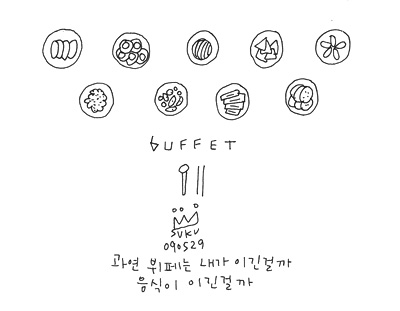 BUFFET
SUKU
090529
과연 뷔페는 내가 이긴걸까
음식이 이긴걸까